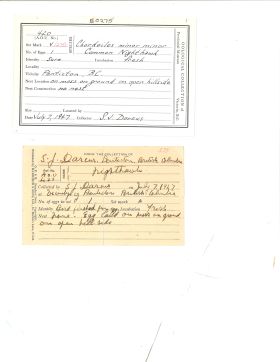 E0275
420
(A.O.U. No.)
Chordeiles minor minor
Set Mark
No. of Eggs 1 Common Nighthawk
Identity Sure Incubation Fresh
Locality
Vicinity Penticton, B.C.
Nest Location on moss on ground on open hillside
Nest Construction no nest
Size Located by
Date July 7, 1947 Collector S.J. Darcus
OOLOGICAL COLLECTION of
Provincial Museum
Victoria, B.C.
FROM THE COLLECTION OF
S. J. Darcus, Penticton, British Columbia
Nighthawk
Collected by S J Darcus on July 7, 1947
at Penticton British Columbia
No. of eggs in set 1 Set mark
Identity Bird flushed from egg Incubation Fresh
Nest None. Egg laid on moss on ground
on open hill side